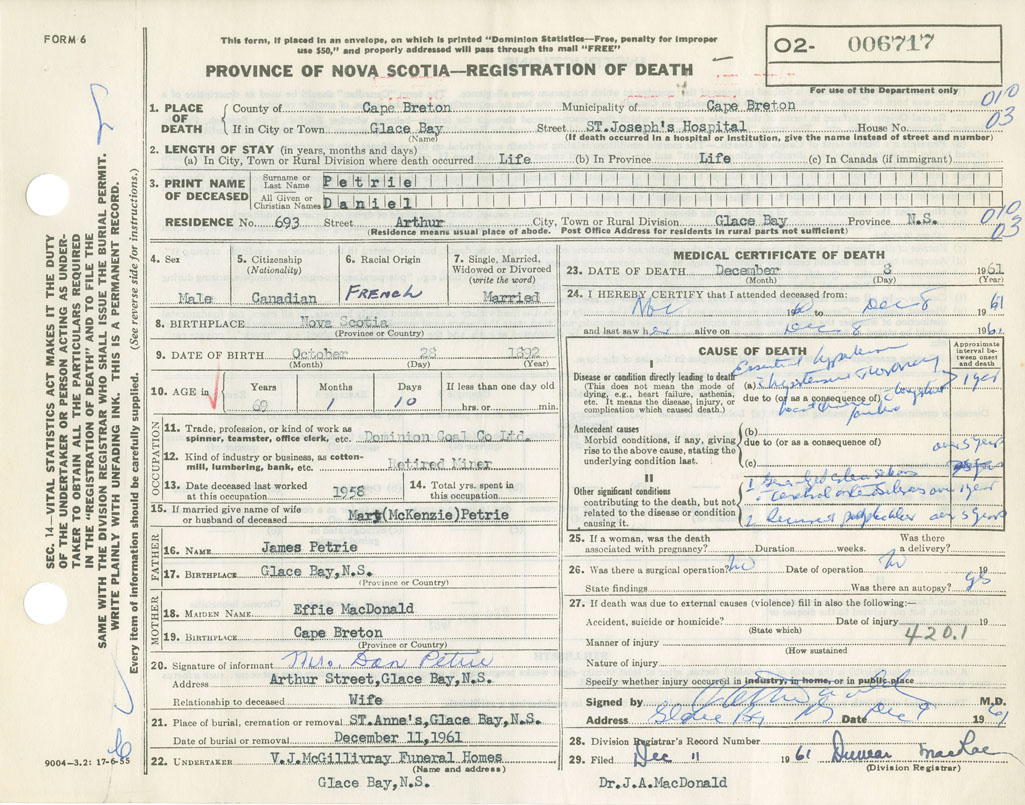 FORM 6
This form, if placed in an envelope, on which is printed "Dominion Statistics—Free, penalty for improper
use $50," and properly addressed will pass through the mail "FREE"
02- 006717
PROVINCE OF NOVA SCOTIA—REGISTRATION OF DEATH
For use of the Department only
010
03
1. PLACE OF DEATH
County of Cape Breton Municipality of Cape Breton
If in City or Town Glace Bay Street ST.Joseph's Hospital House No.
(Name) (If death occurred in a hospital or institution, give the name instead of street and number)
2. LENGTH OF STAY (in years, months and days)
(a) In City, Town or Rural Division where death occurred Life (b) In Province Life (c) In Canada (if immigrant)
3. PRINT NAME OF DECEASED
Surname or Last Name Petrie
All Given or Christian Names Daniel
RESIDENCE No. 693 Street Arthur City, Town or Rural Division Glace Bay Province N.S.
(Residence means usual place of abode. Post Office Address for residents in rural parts not sufficient)
010
03
4. Sex
Male
5. Citizenship
(Nationality)
Canadian
6. Racial Origin
FRENCH
7. Single, Married, Widowed or Divorced
(write the word)
Married
8. BIRTHPLACE Nova Scotia
(Province or Country)
9. DATE OF BIRTH October 28 1892
(Month) (Day) (Year)
10. AGE in
Years Months Days If less than one day old
69 1 10 hrs. or min.
OCCUPATION
11. Trade, profession, or kind of work as
spinner, teamster, office clerk, etc. Dominion Coal Co Ltd.
12. Kind of industry or business, as cotton-
mill, lumbering, bank, etc. Retired Miner
13. Date deceased last worked
at this occupation 1958
14. Total yrs. spent in
this occupation
15. If married give name of wife
or husband of deceased Mary(McKenzie)Petrie
FATHER
16. NAME James Petrie
17. BIRTHPLACE Glace Bay,N.S.
(Province or Country)
MOTHER
18. MAIDEN NAME Effie MacDonald
19. BIRTHPLACE Cape Breton
(Province or Country)
20. Signature of informant Mrs. Dan Petrie
Address Arthur Street,Glace Bay,N.S.
Relationship to deceased Wife
21. Place of burial, cremation or removal ST.Anne's,Glace Bay,N.S.
Date of burial or removal December 11,1961
22. UNDERTAKER V.J.McGillivray Funeral Homes
(Name and address)
Glace Bay,N.S.
MEDICAL CERTIFICATE OF DEATH
23. DATE OF DEATH December 8 1961
(Month) (Day) (Year)
24. I HEREBY CERTIFY that I attended deceased from:
Nov 19 to Dec 8 1961
and last saw h alive on Dec 8 1961
CAUSE OF DEATH
Approximate interval between onset and death
I
Disease or condition directly leading to death
(This does not mean the mode of
dying, e.g., heart failure, asthenia,
etc. It means the disease, injury, or
complication which caused death.)
Essential
(a) Hypertensive Coronary 1 year
due to (or as a consequence of)
heart disease
Antecedent causes
Morbid conditions, if any, giving
rise to the above cause, stating the
underlying condition last.
(b)
due to (or as a consequence of)
(c)
over 5 years
II
Other significant conditions
contributing to the death, but not
related to the disease or condition
causing it.
1
over 1 year
2 over 5 years
25. If a woman, was the death
associated with pregnancy? Duration weeks. Was there
a delivery?
26. Was there a surgical operation? No Date of operation No 19
State findings Was there an autopsy? yes
27. If death was due to external causes (violence) fill in also the following:—
Accident, suicide or homicide? Date of injury 19
(State which)
420.1
Manner of injury
(How sustained
Nature of injury
Specify whether injury occurred in industry, in home, or in public place
Signed by M.D.
Address Glace Bay NS Date Dec 9 1961
28. Division Registrar's Record Number
29. Filed Dec 11 1961 Dunvar MacRae
(Division Registrar)
Dr.J.A.MacDonald
SEC. 14—VITAL STATISTICS ACT MAKES IT THE DUTY
OF THE UNDERTAKER OR PERSON ACTING AS UNDER-
TAKER TO OBTAIN ALL THE PARTICULARS REQUIRED
IN THE "REGISTRATION OF DEATH" AND TO FILE THE
SAME WITH THE DIVISION REGISTRAR WHO SHALL ISSUE THE BURIAL PERMIT.
WRITE PLAINLY WITH UNFADING INK. THIS IS A PERMANENT RECORD.
Every item of information should be carefully supplied. (See reverse side for instructions.)
9004—3.2: 17-6-55